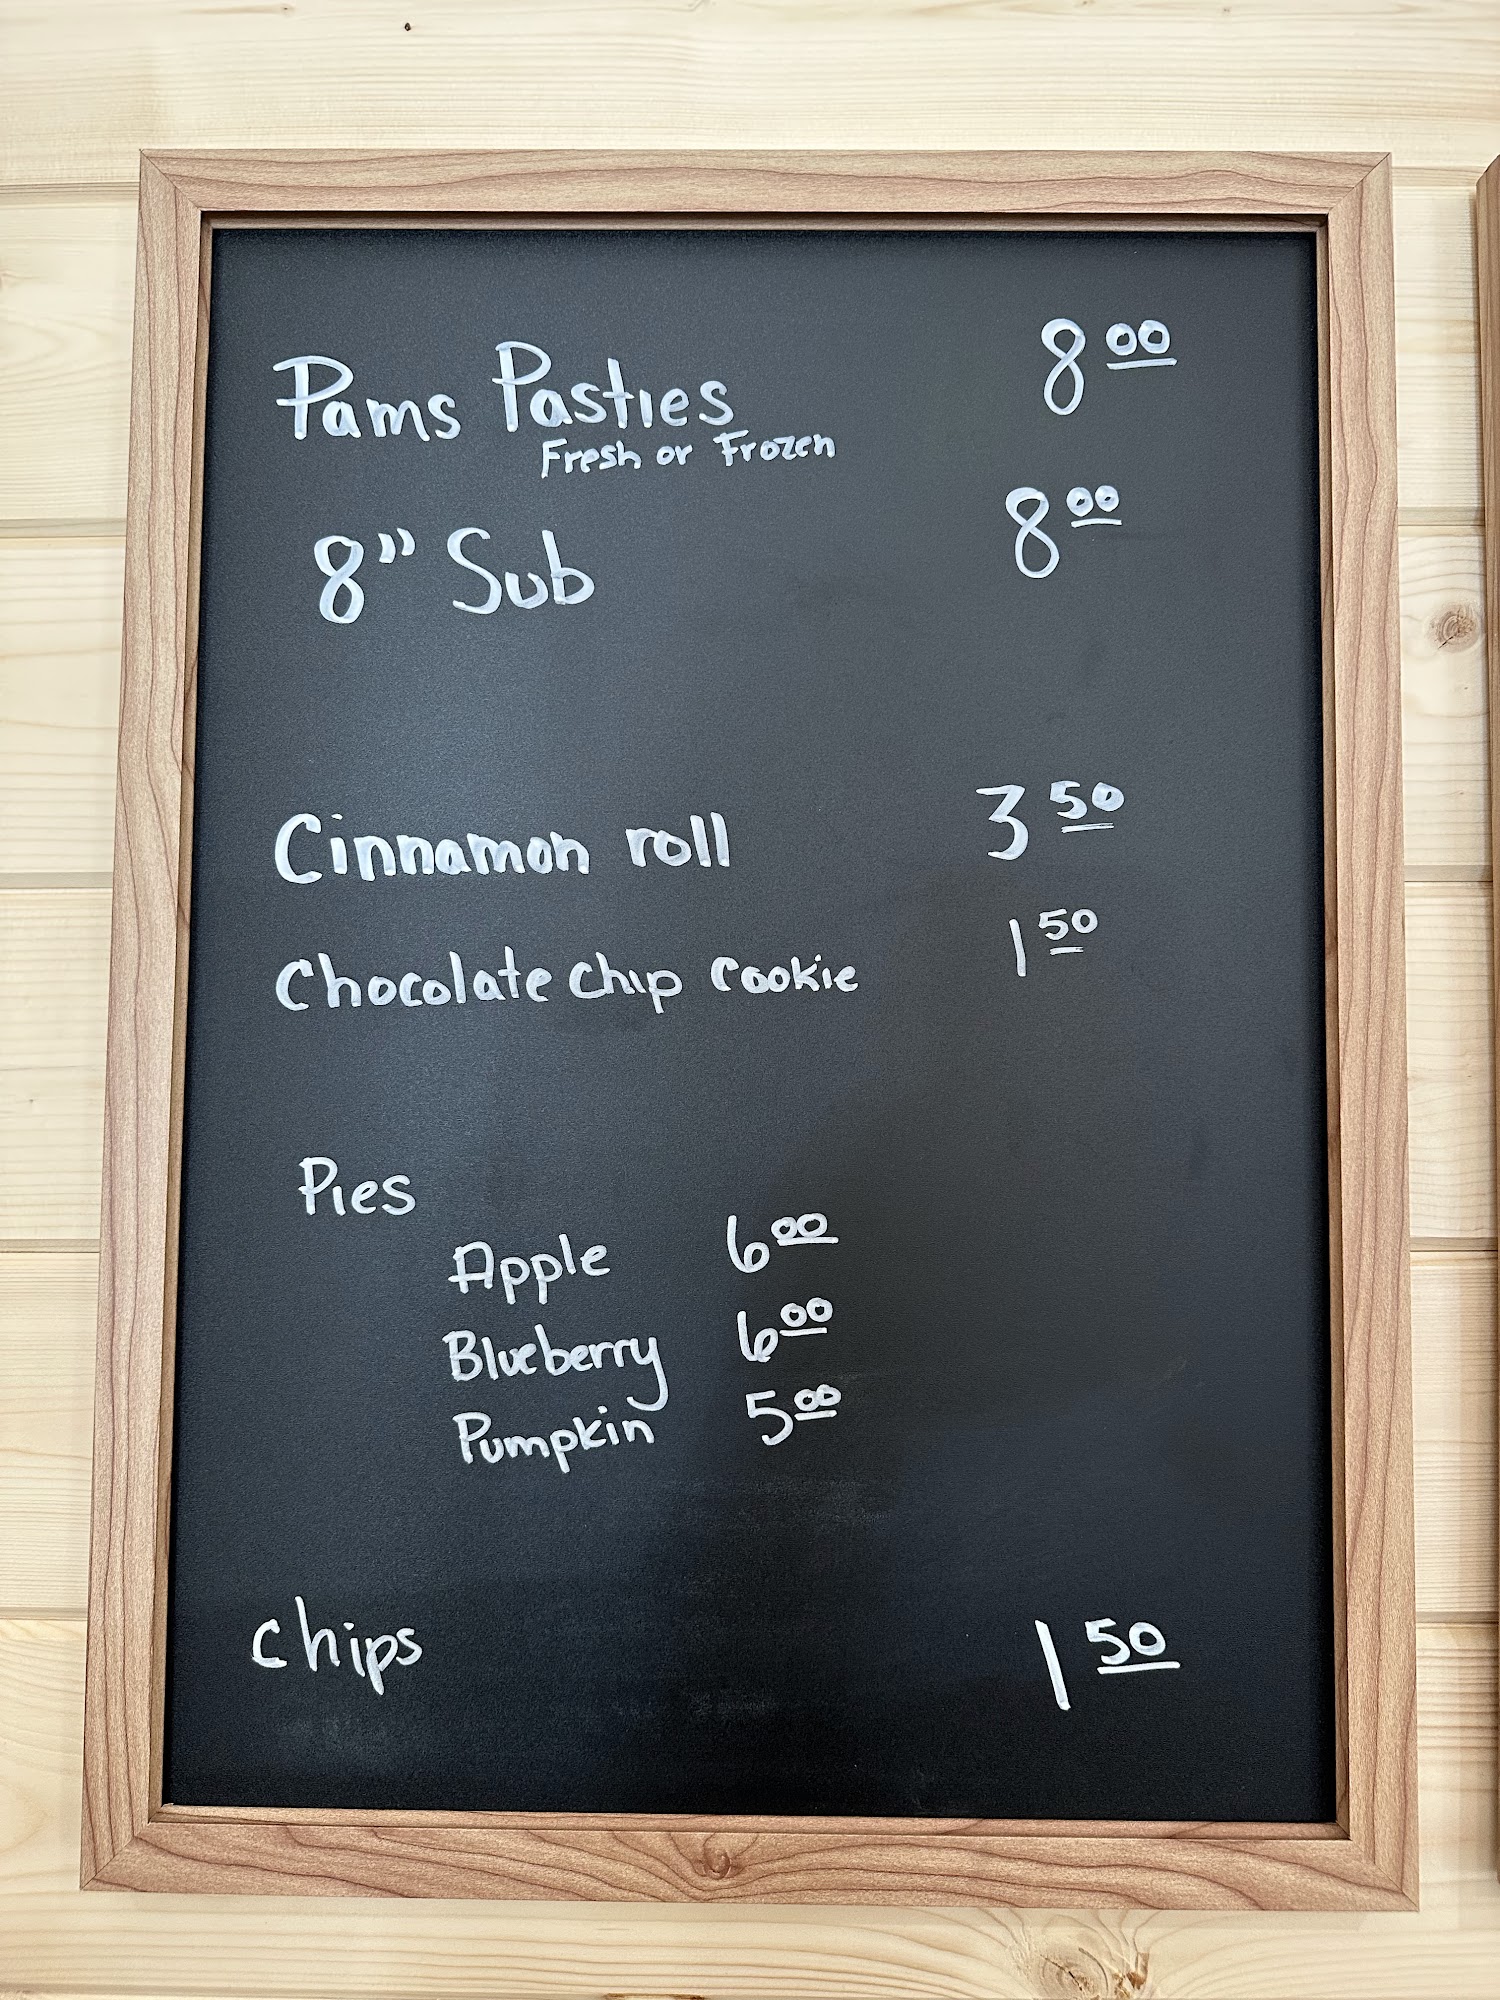 Pams Pasties 8 00
Fresh or Frozen
8" Sub 8 00
Cinnamon roll 3 50
Chocolate chip cookie 1 50
Pies
Apple 6 00
Blueberry 6 00
Pumpkin 5 00
chips 1 50